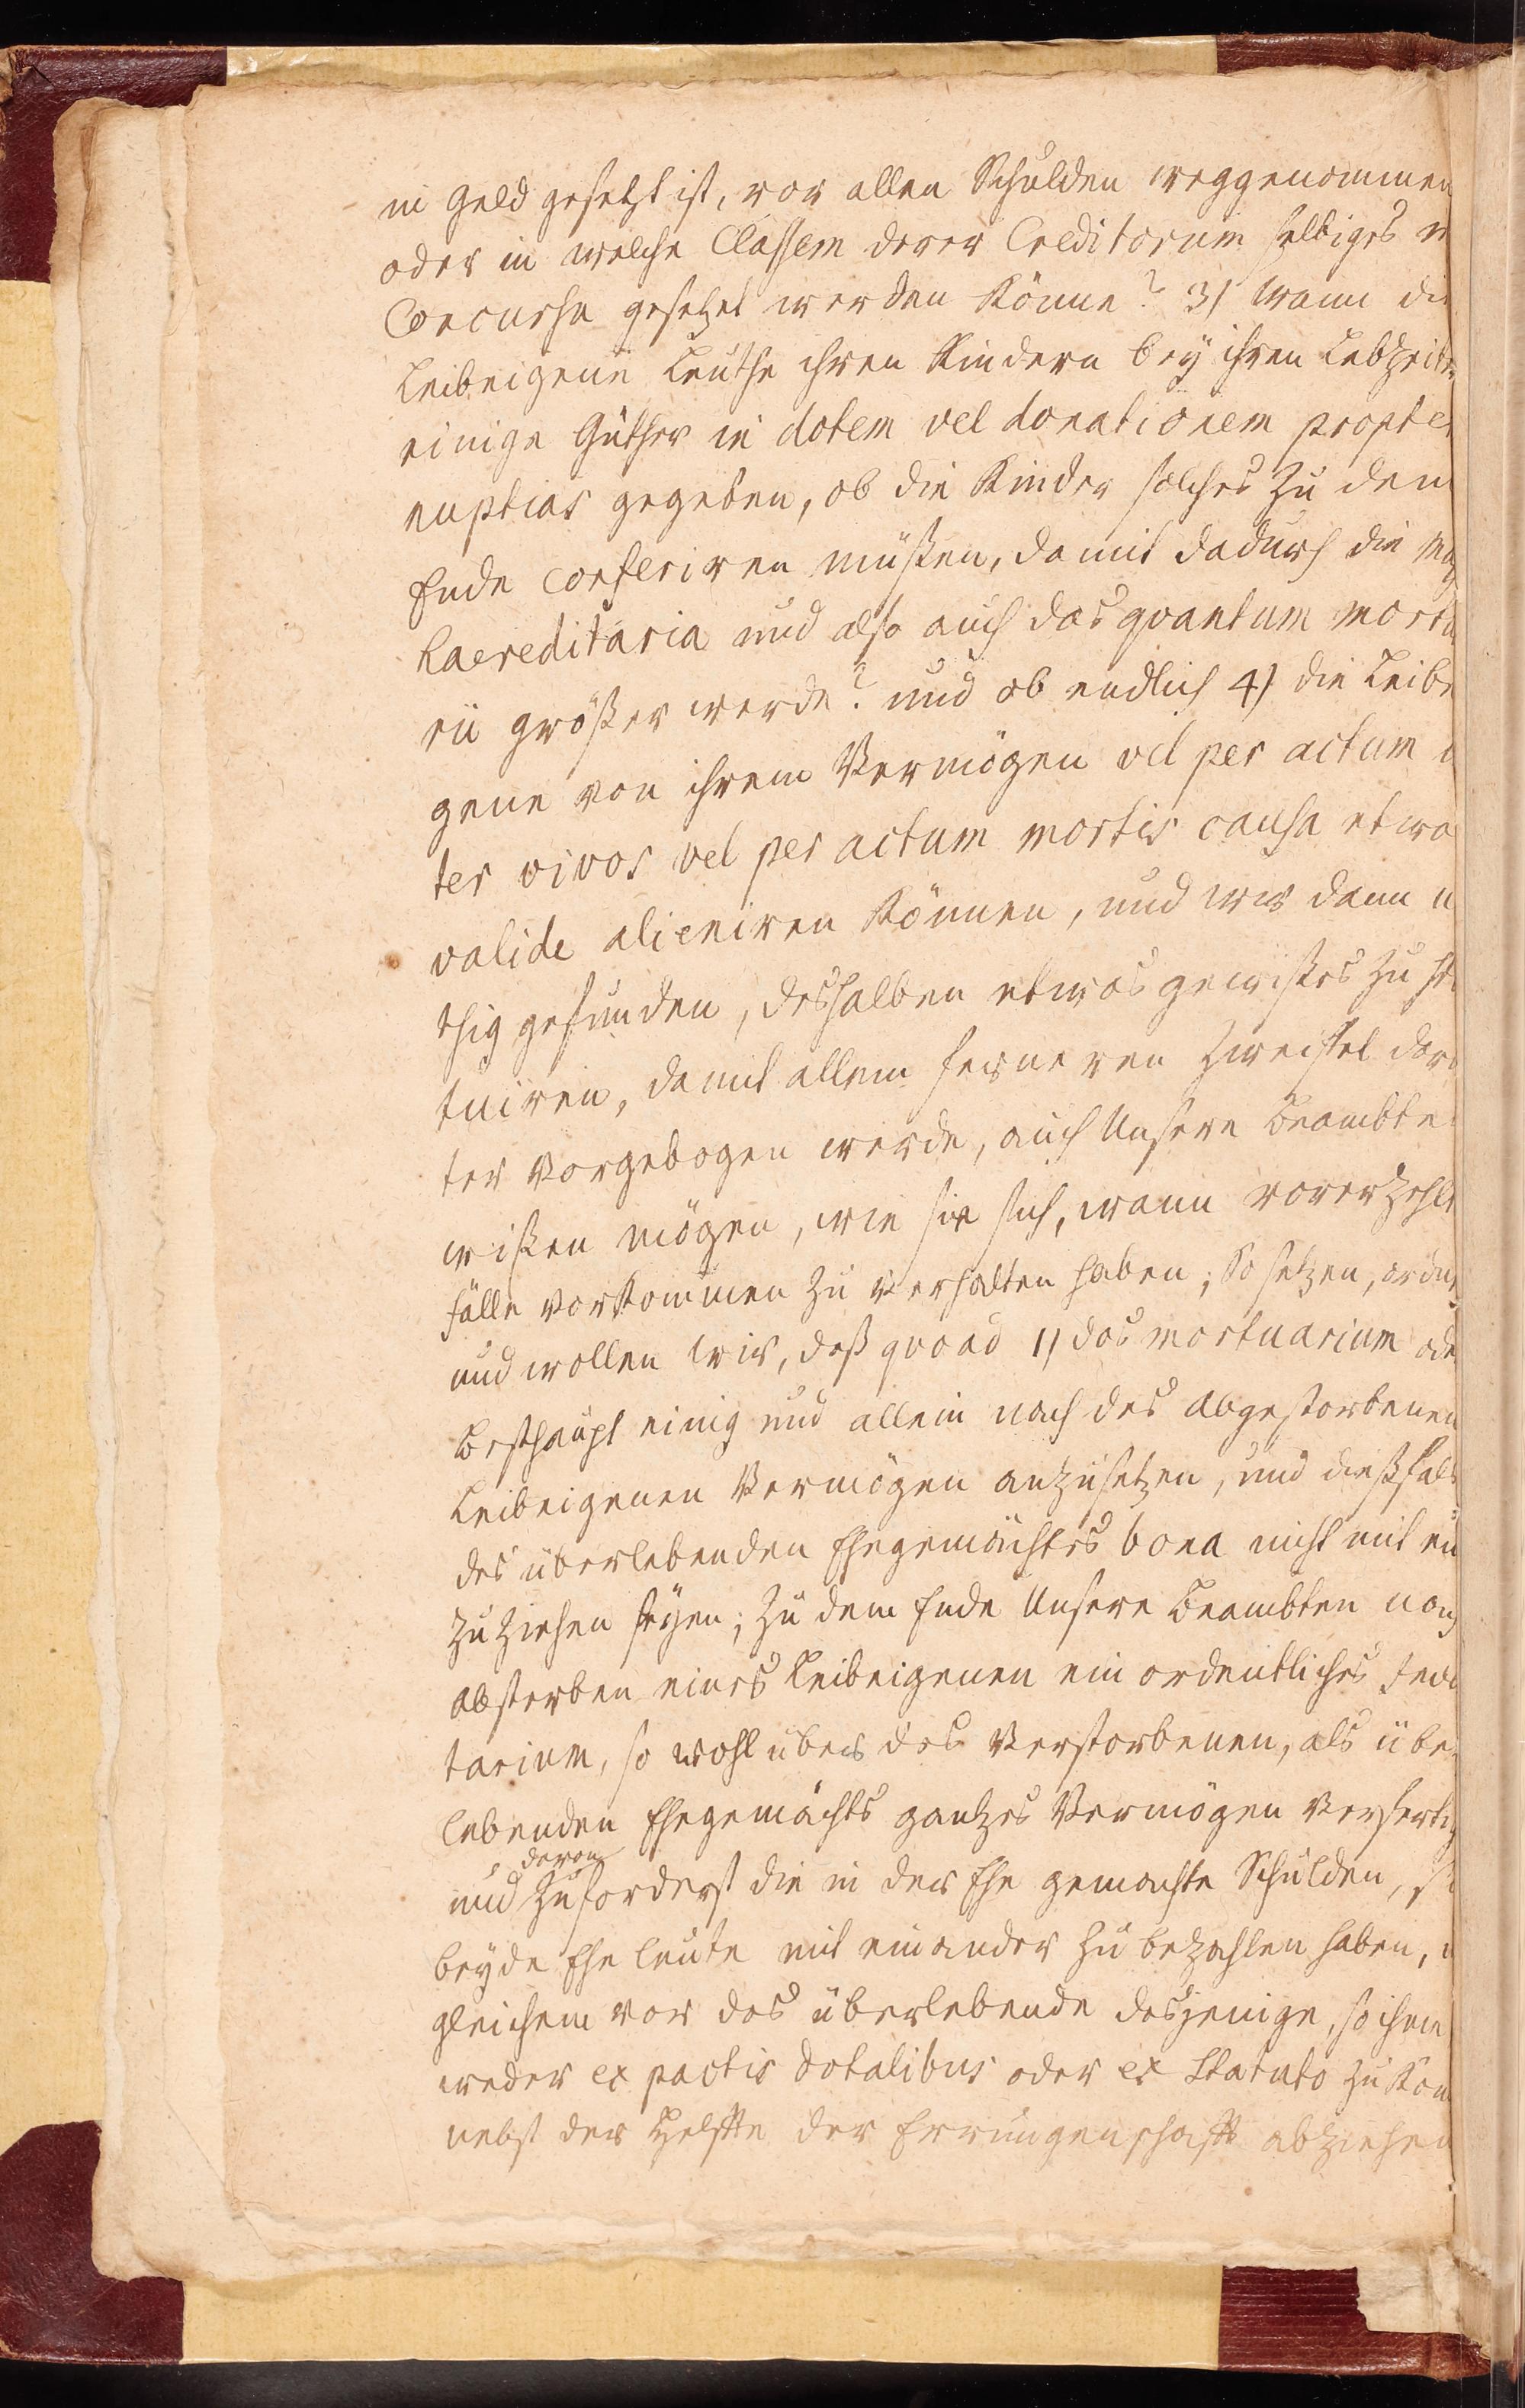 in geld gesetzt ist, vor allen Schulden weggenommen
oder in welche Classem derer Creditorum selbiges
Concurse gesetzet werden könne? 3) Wann die
Leibeigene Leuthe ihren Kindern bey ihren Lebzeiten
einige Güther in dotem vel donationem propter
nuptias gegeben, ob die Kinder solches zu dem
Ende conferiren müßen, damit dadurch die
haereditaria und also auch das quantum mortua
rii größer werde? und ob endlich 4) die Leibei
gene von ihrem Vermögen vel per actum
ter vivos vel per actum mortis causa etwas
valide alieniren können, und wir dann
thig gefunden, deshalben etwas gewißes zu sta
tuiren, damit allem ferneren Zweiffel darun
ter vorgebogen werde, auch Unsere Beambte
wißen mögen, wie sie sich, wann vorerzehlte
fälle vorkommen zu verhalten haben; So setzen, ordnen
und wollen wir, daß quoad 1) das mortuarium oder
Besthaupt einig und allein nach des abgestorbenen
Leibeigenen Vermögen anzusetzen, und dießfals
des überlebenden Ehegemächtes bona nicht mit ein
zu ziehen seyen; zu dem Ende Unsere Beambten nach
absterben eines Leibeigenen ein ordentliches Inven
tarium, so wohl über des Verstorbenen, als über
lebenden Ehegemächts gantzes Vermögen verfertig
davon
und zuforderst die in der Ehe gemachte Schulden,
beyde Eheleute mit einander zu bezahlen haben,
gleichem vor das überlebende dasjenige, so ihme
weder ex pactis dotalibus oder ex Statuto zukom
nebst der Helffte der Errungenschafft abziehen